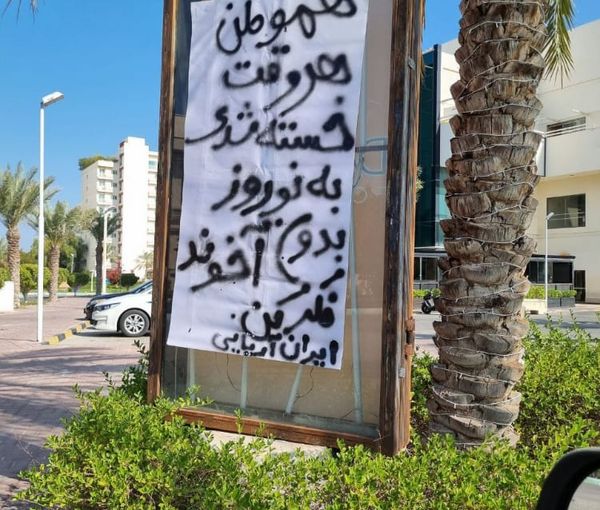 هموطن
هروقت
خسته شدی
به نوروز
بدون آخوند
فکر کن.
ایران آریایی